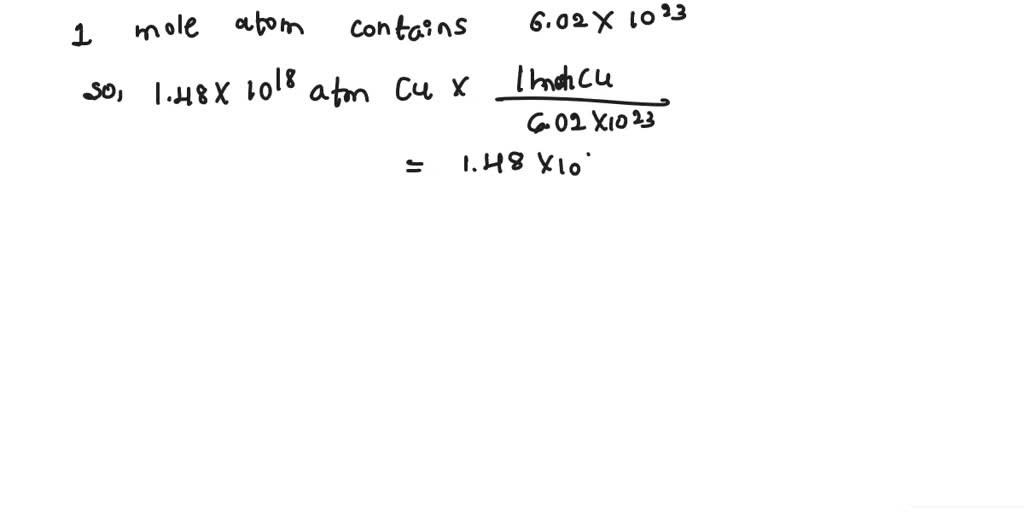 1 mole atom contains 6.02 X 10^23
so, 1.48 X 10^18 atm Cu x 1 mol Cu / 6.02 X 10^23
= 1.48 X 10